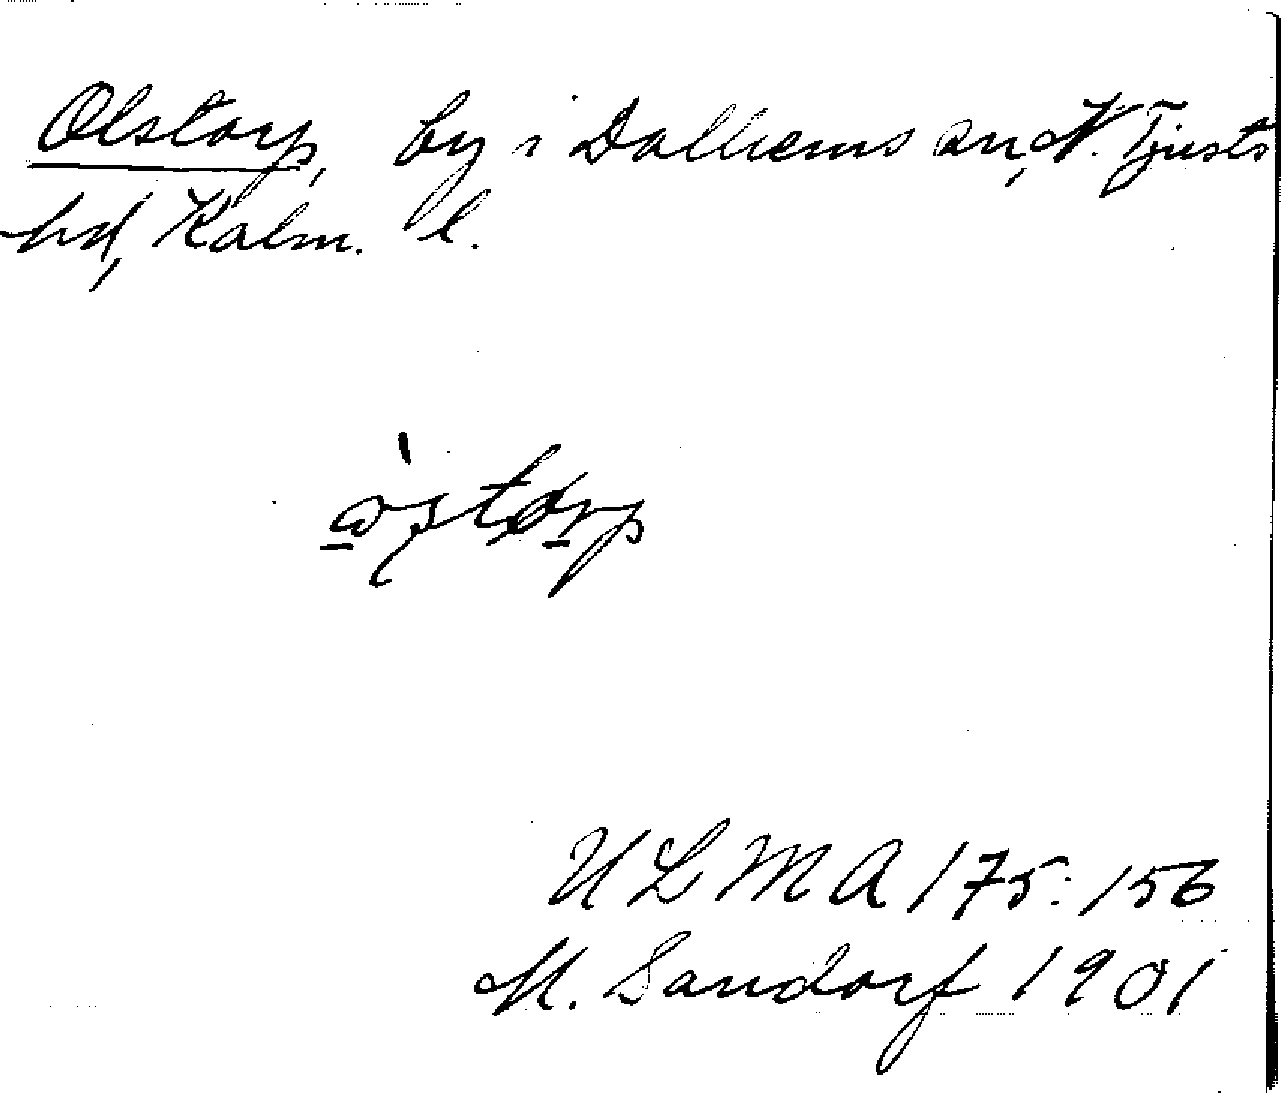 Olstorp, by i Dalhems sn, N. Tjusts
hd, Kalm. l.
ULMA 175:156
M. Sandorf 1901